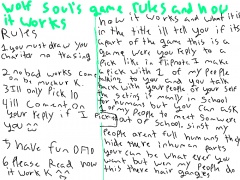 wolf soul's game rules and how
it works
Rules
1 you must draw you
charter no tracing
2 no bad works come
on be mature K.
3 Ill only Pick 10
4 ill comment on
your reply if I pick
you
5 have fun
6 Please Read how
it work K
how it works and what it is
in the title ill tell you if its
apart of the game this is a
game were you reply to a
pick like in flipnote I make
a pick with 1 of my People
talking to you and you talk
back with your people or your self
the seting if mainly in School
for humans but you can ask
1 of my People to meet somwere
out of School sinst my
People arent full humans they
hide there inhuman parts
your can be what ever you
want but wen my People do
this there hair ganges